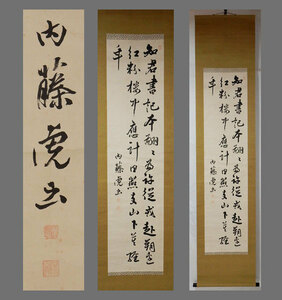 内藤虎書
知君書記本翩々為許從戎赴朔邊
紅粉樓中應計日燕支山下莫經
年
内藤虎書
知君書記本翩々為許從戎赴朔邊
紅粉樓中應計日燕支山下莫經
年
内藤虎書